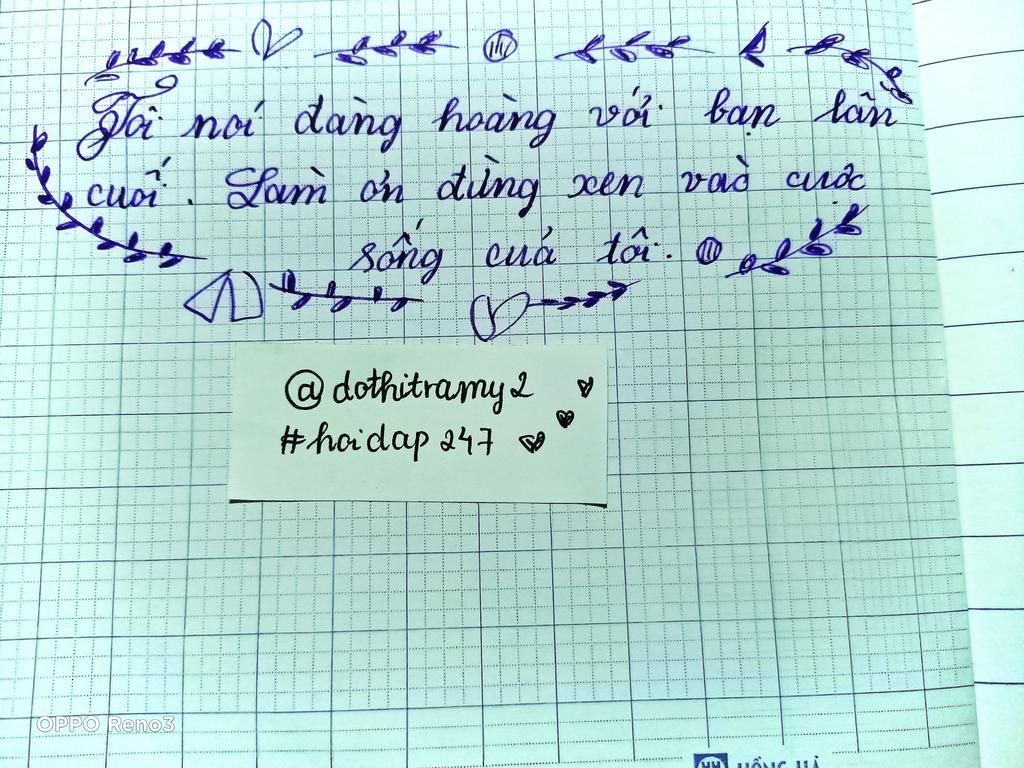 Tôi nói đàng hoàng với bạn lần
cuối. Làm ơn đừng xen vào cuộc
sống của tôi.
@dothitramy2
#hoidap247
OPPO Reno3
HỒNG HÀ